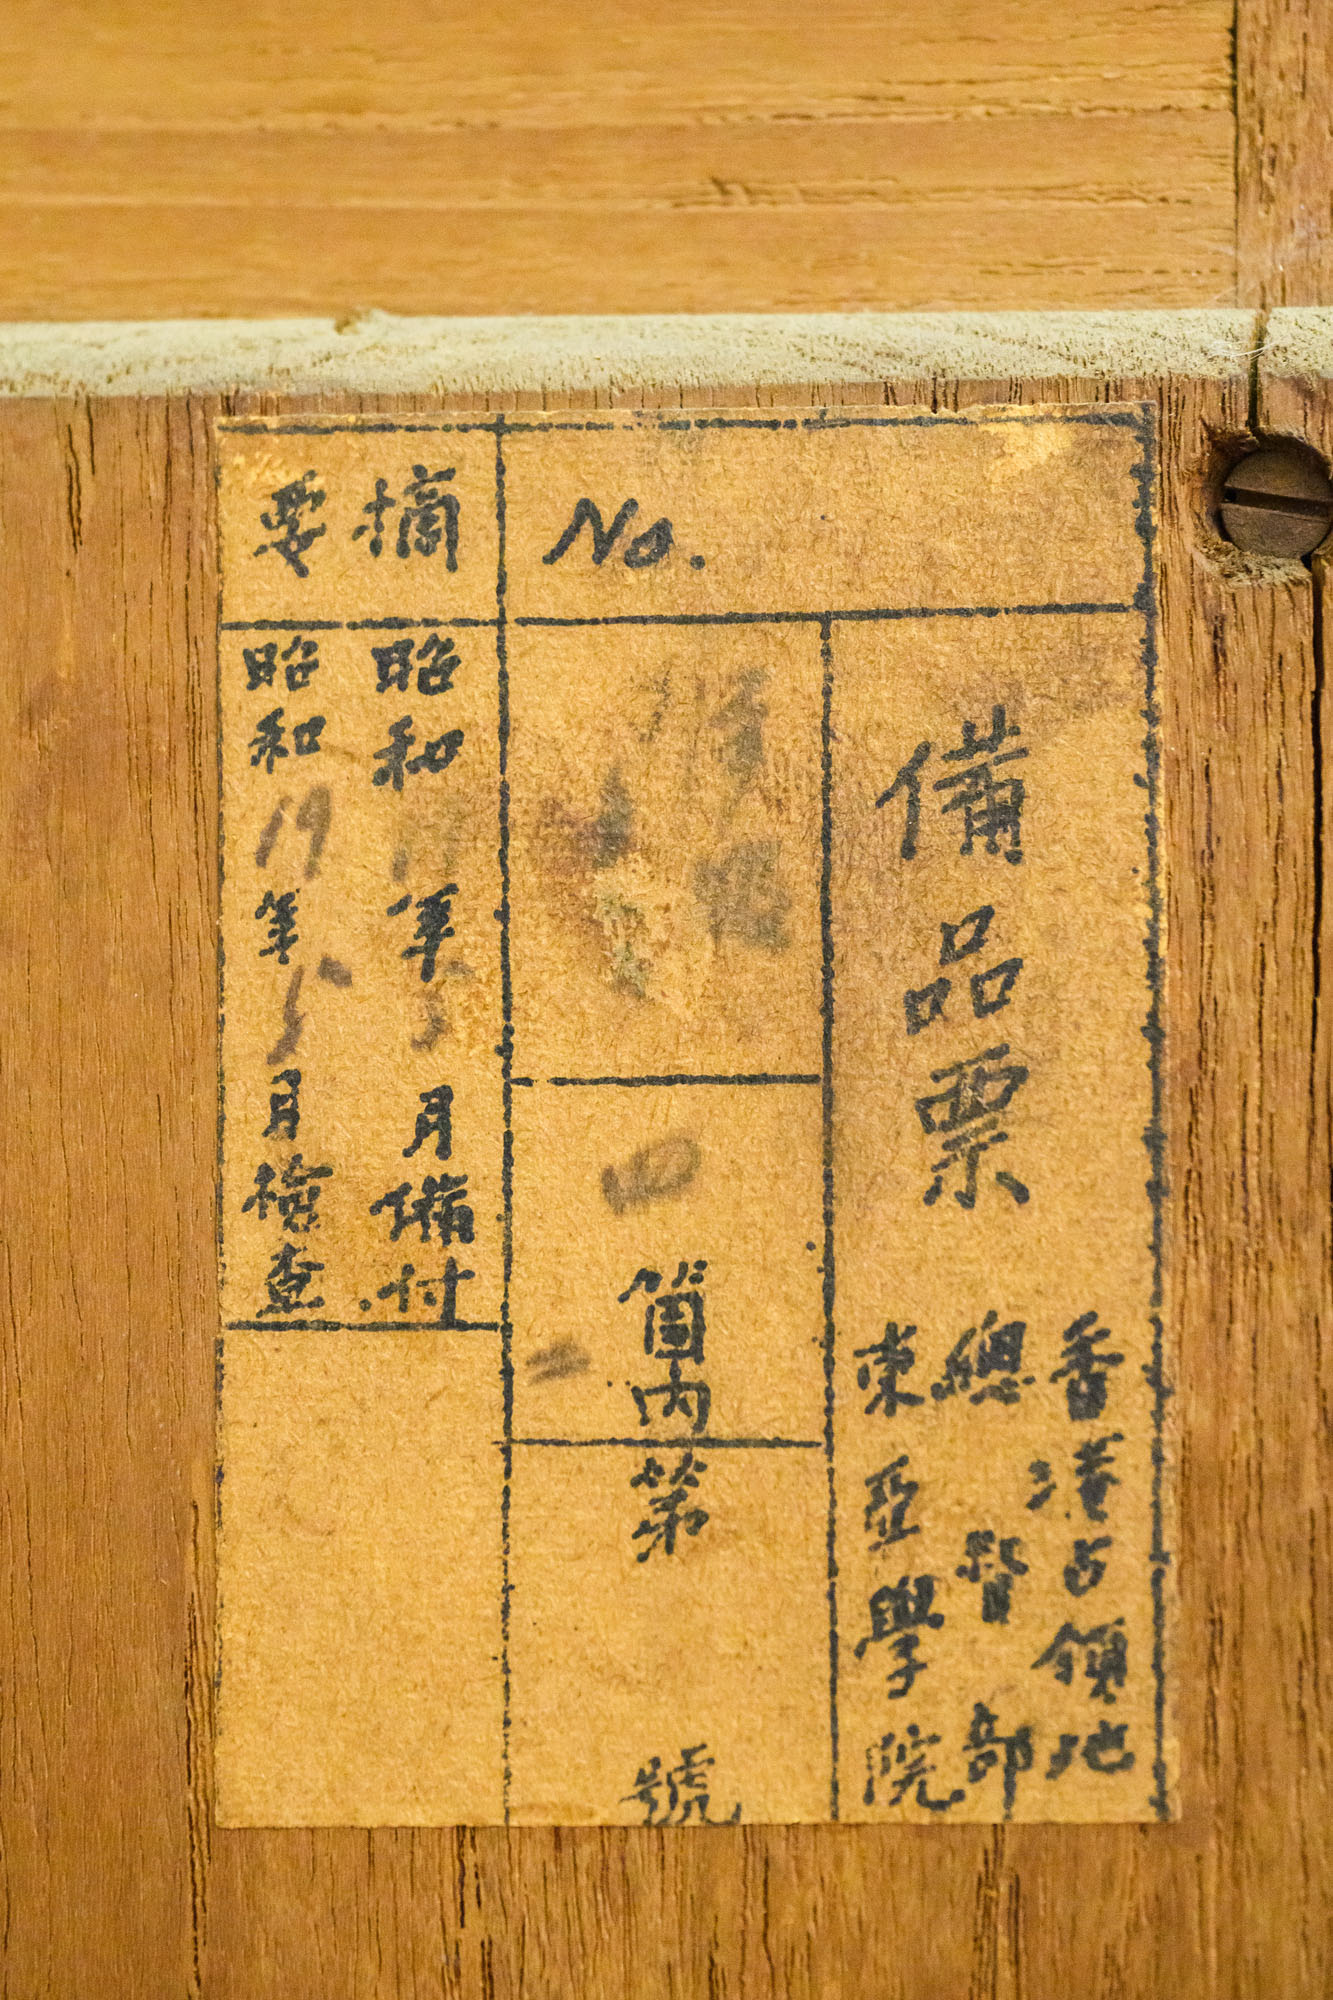 No.
備品票
香港占領地
總督部
東亞學院
四箇內第二號
摘要
昭和 年 月備付
昭和19年5月檢查